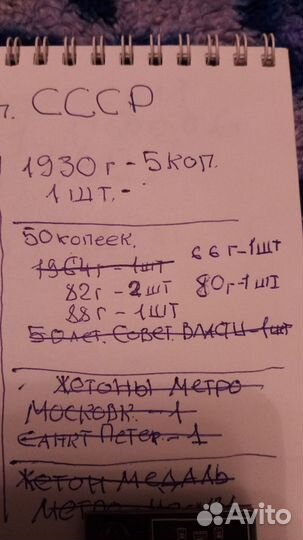 п. СССР
1930 г - 5 коп.
1 шт. -
50 копеек.
1964 г - 1 шт 66 г - 1 шт
82 г - 2 шт 80 г - 1 шт
88 г - 1 шт
50 лет. Совет. Власти - 1 шт
Жетоны метро
Московк. - 1
Санкт Петер. - 1
Жетон медаль
метро
Avito